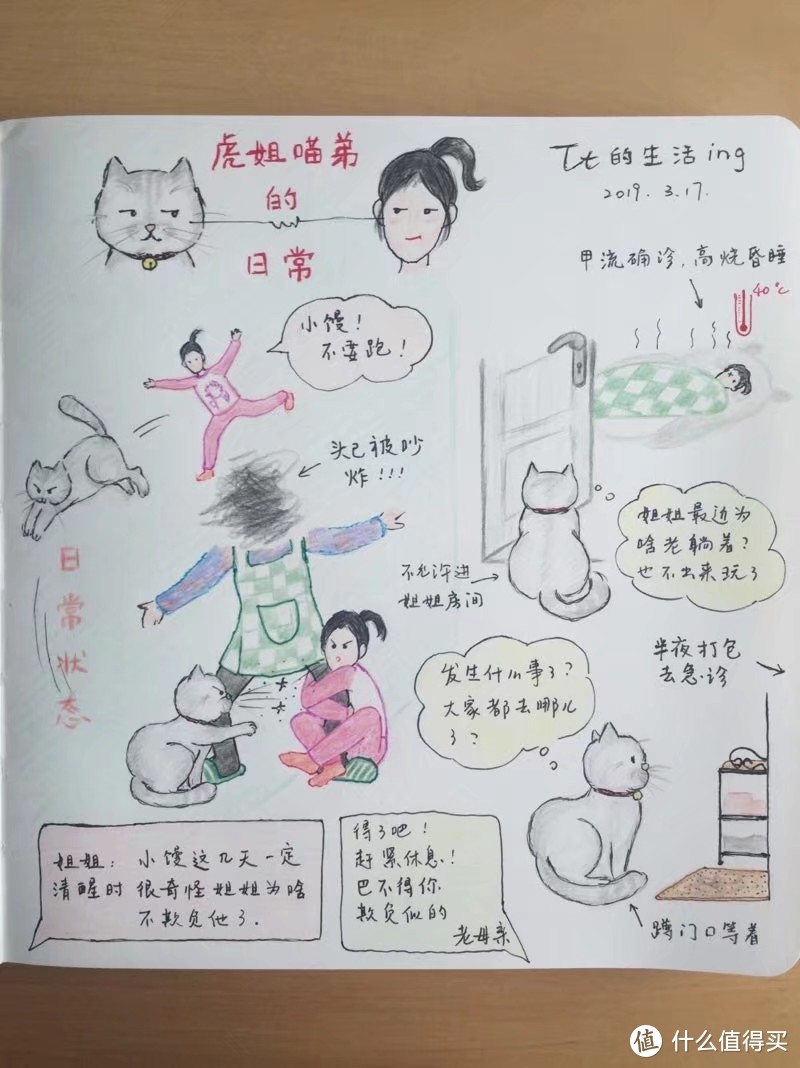 虎姐喵弟
的
日常
Tt的生活ing
2019.3.17.
甲流确诊,高烧昏睡
40℃
小馒!
不要跑!
头已被吵
炸!!!
日常状态
不允许进
姐姐房间
姐姐最边为
啥老躺着?
也不出来玩了
发生什么事了?
大家都去哪儿
了?
半夜打包
去急诊
蹲门口等着
姐姐: 小馒这几天一定
清醒时 很奇怪姐姐为啥
不欺负他了.
得了吧!
赶紧休息!
巴不得你
欺负似的
老母亲
值 什么值得买